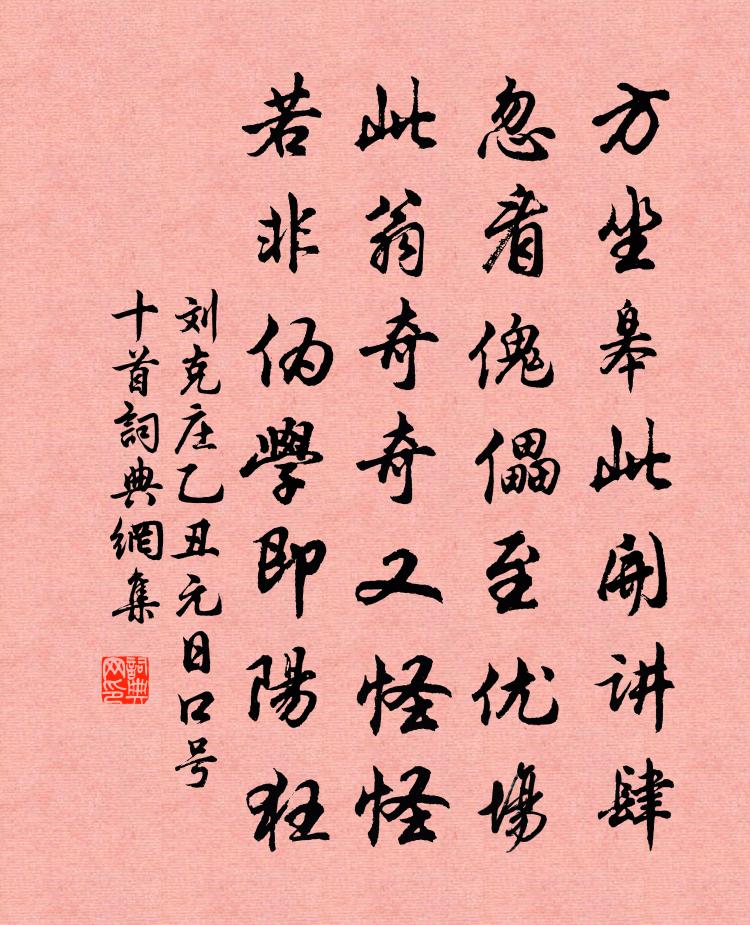 方坐皋此開讲肆
忽看傀儡至优場
此翁奇奇又怪怪
若非伪學即陽狂
刘克庄乙丑元日口号
十首詞典網集
詞典网印